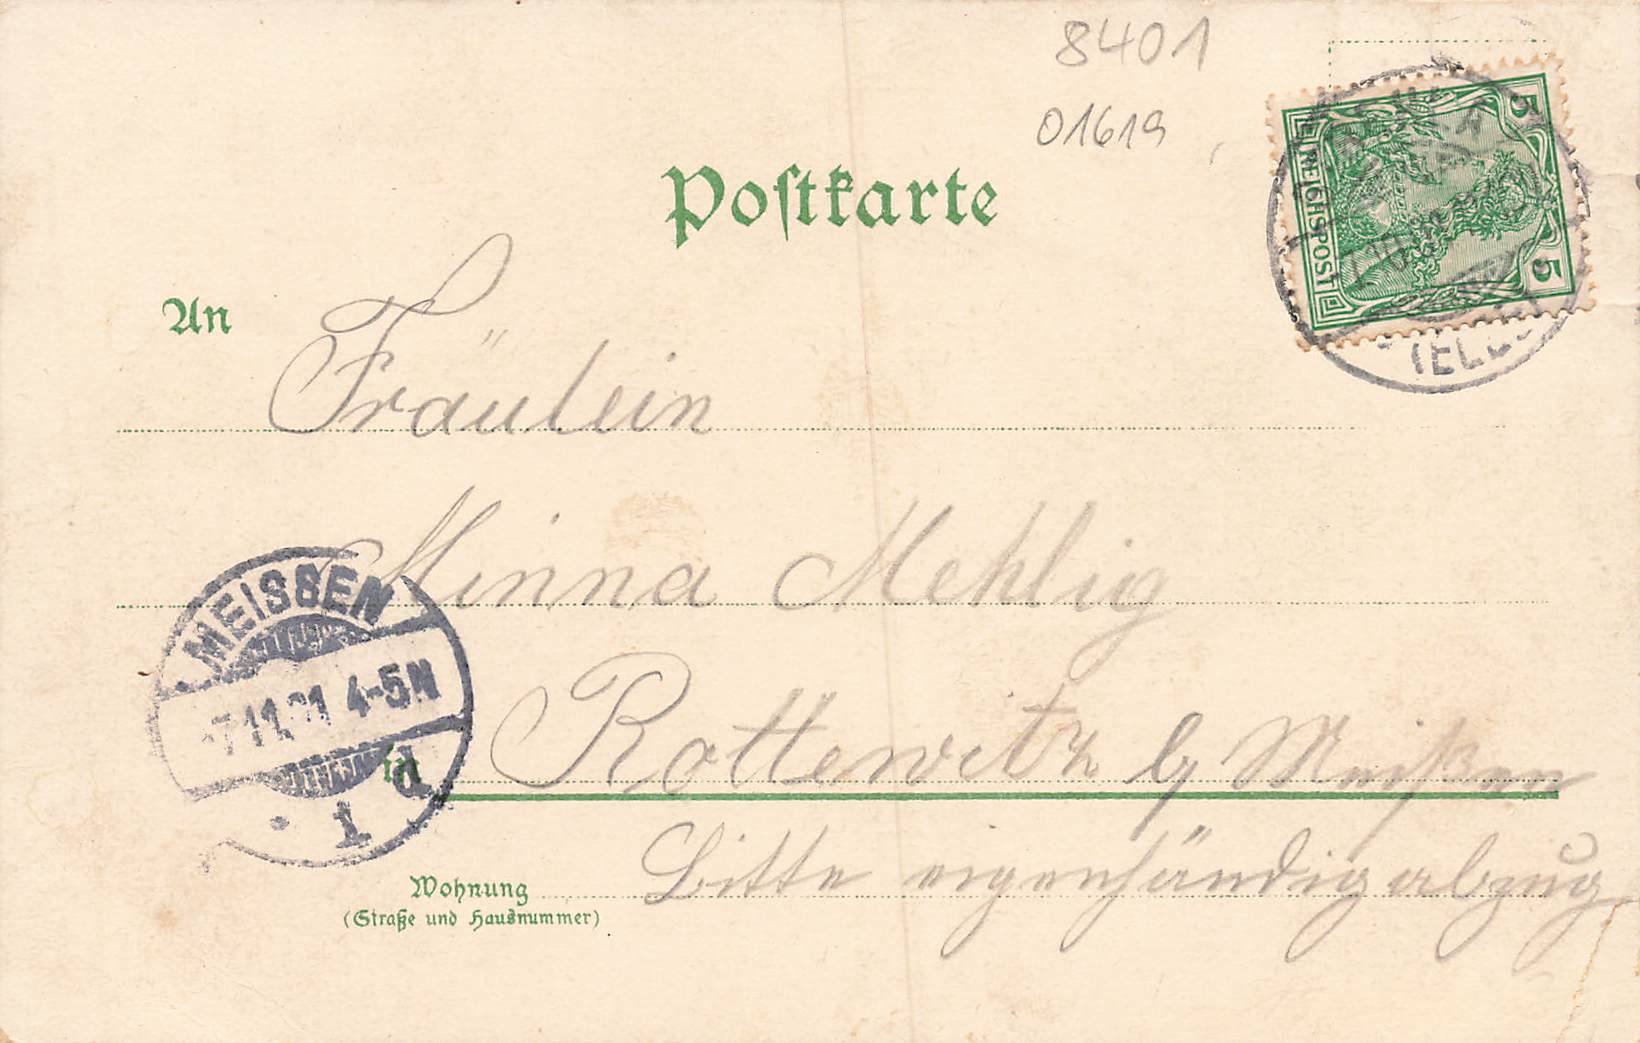 8401
01619
5
REICHSPOST
5
Postkarte
An
Fräulein
Minna Mehlig
MEISSEN
-7.11.01 4-5N
1 d
in
Rottewitz b/ Meißen
Bitte eigenhändig abzug
Wohnung
(Straße und Hausnummer)